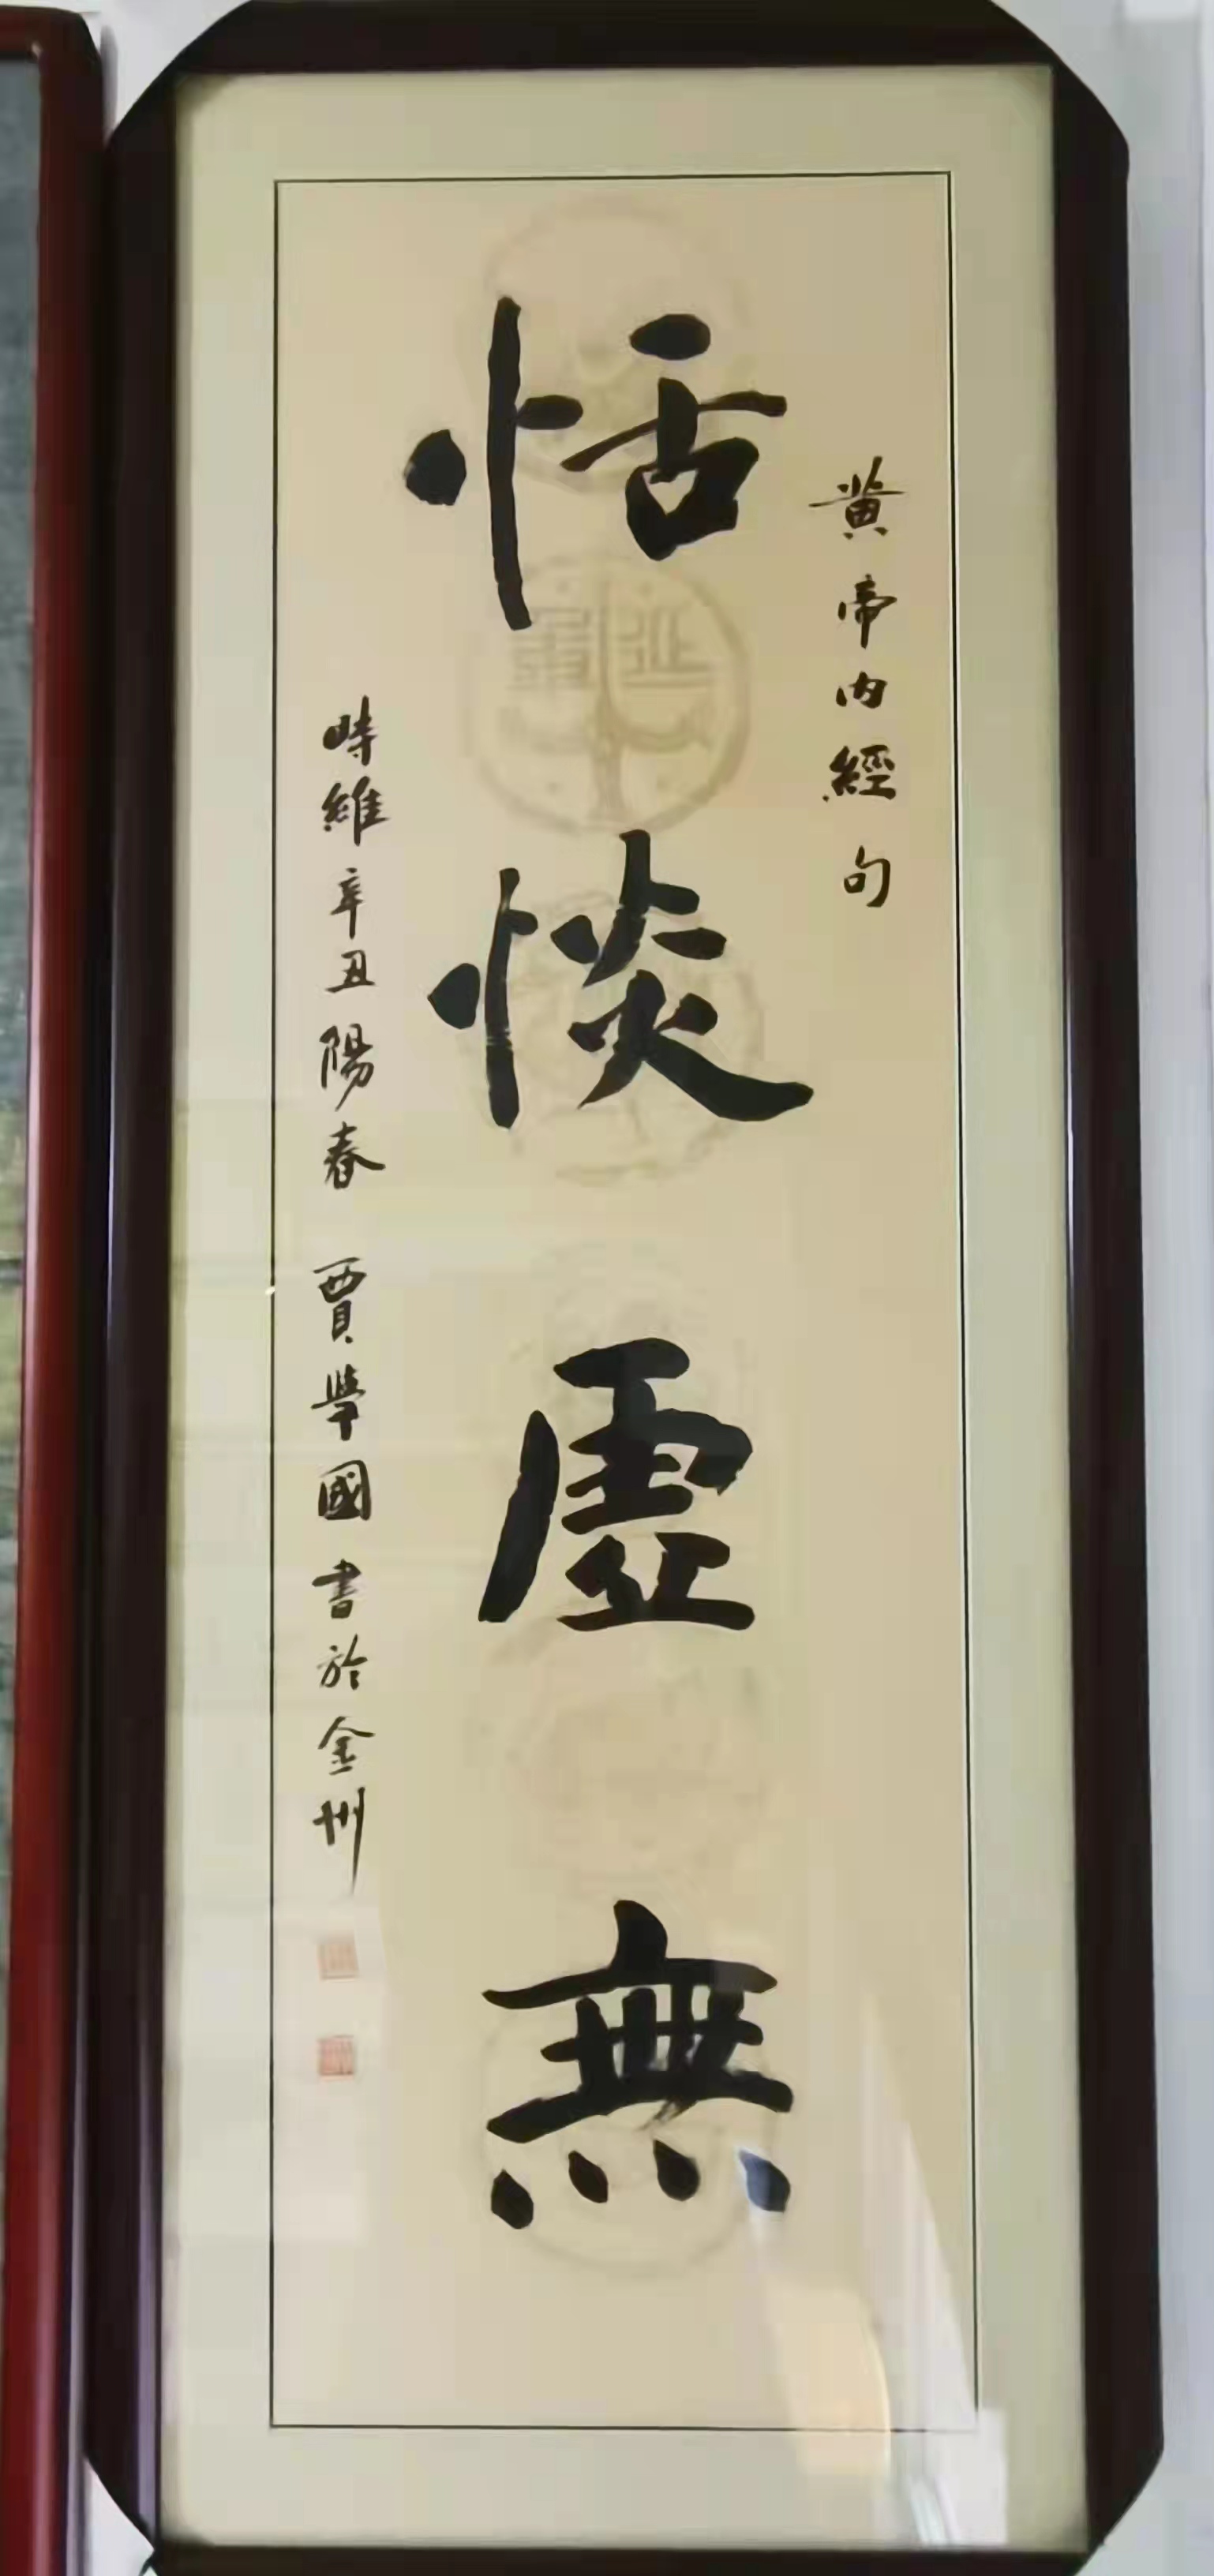 黄帝内經句
恬惔虛無
時維辛丑陽春 賈學國書於金州